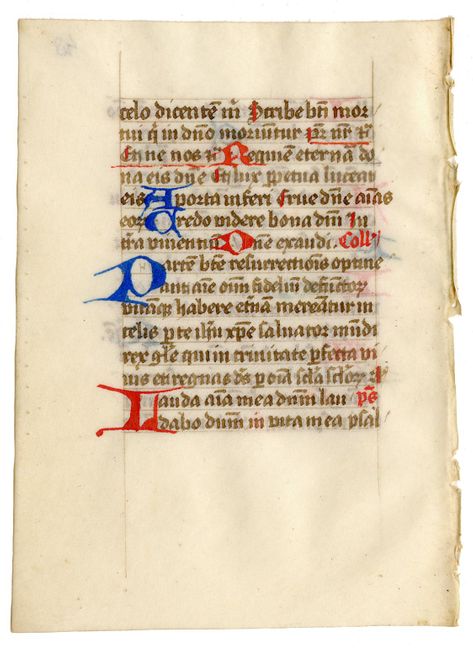 celo dicentē m̄ Scribe bt̄i mor
tui q̄ in dn̄o moriūtur Pr̄ nr̄ Et
Et ne nos Requiem eternā do
na eis dn̄e Et lux ppetua luceat
eis A porta inferi Erue dn̄e aīas
eorꝫ Credo videre bona dn̄i In
tr̄a viventiū Dn̄e exaudi Coll'
Partem bt̄e resurrectiōis optine
ant aīe oīm fideliū defūctorꝫ
vitāqꝫ habere et̄nam mereantur in
celis p te ih̄u xp̄e salvator mūdi
rex gl̄e qui in trinitate pfecta vi
vis et regnas ds̄ p oīa
Lauda aīa mea dn̄um lau ps̄
dabo dn̄um in vita mea psal